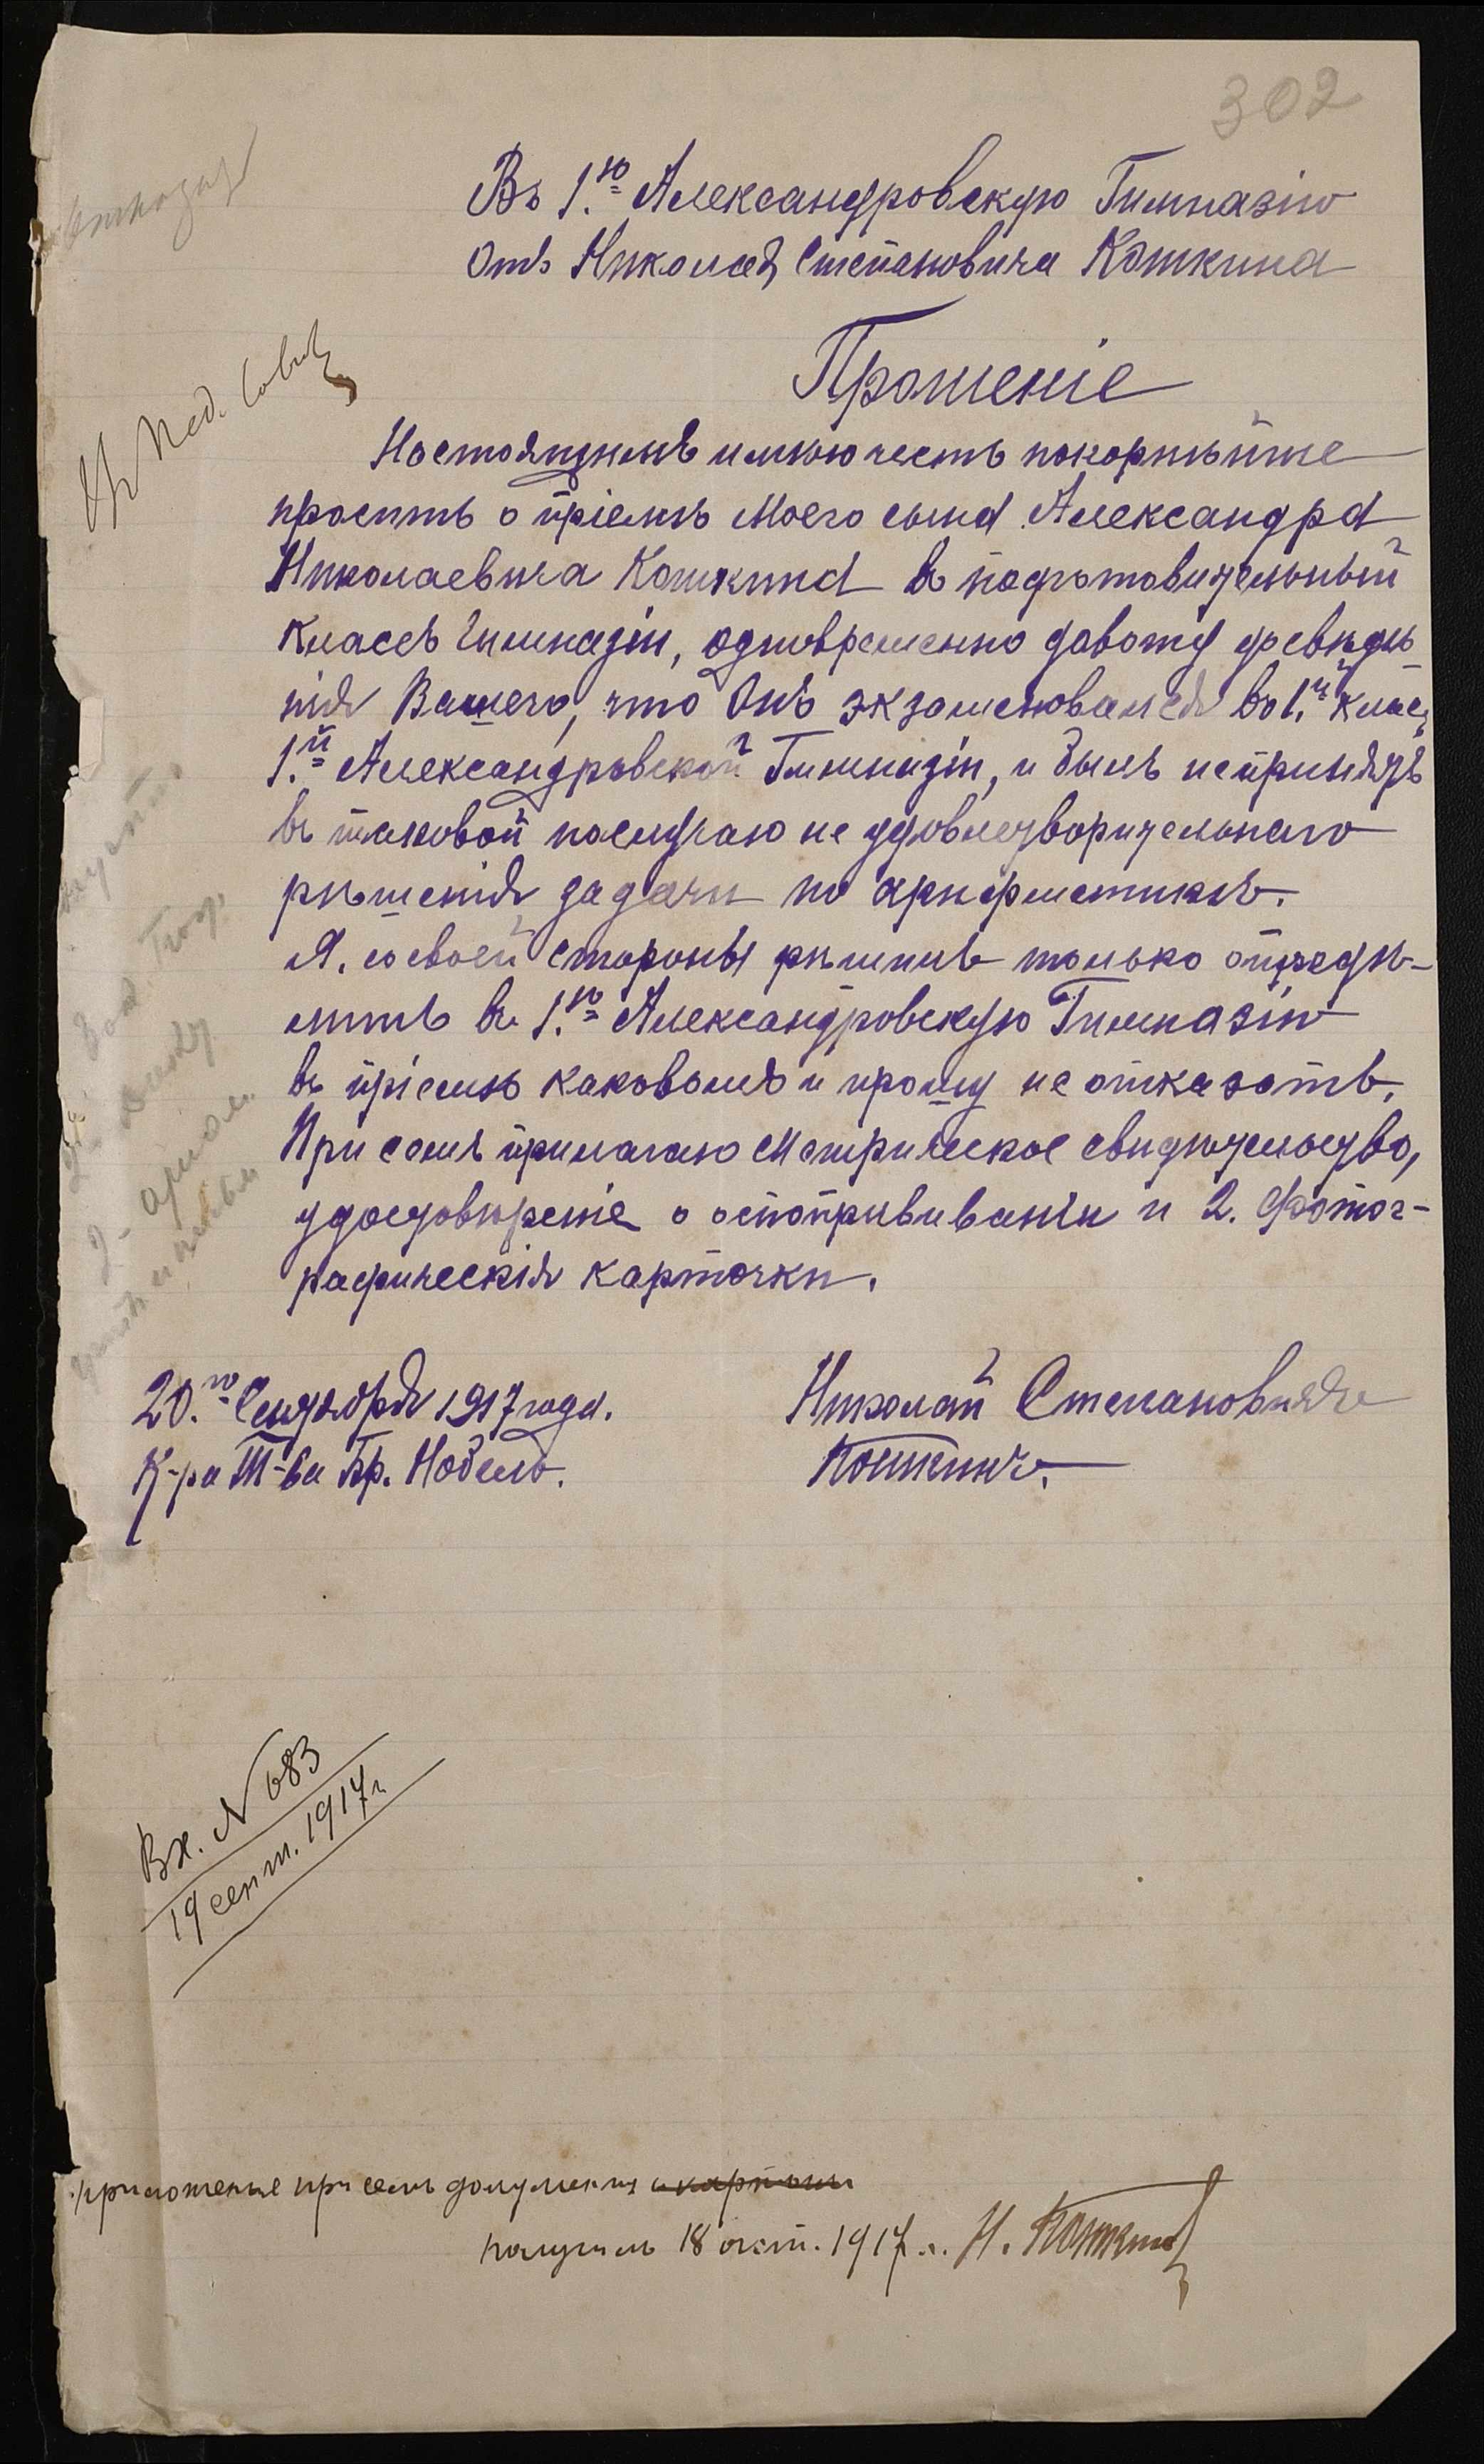 302
Въ 1.ю Александровскую Гимназію
Отъ Николая Степановича Кошкина
Прошеніе
Въ Пед. Совѣтъ
Настоящимъ имѣю честь покорнѣйше
просить о пріемѣ моего сына Александра
Николаевича Кошкина въ подготовительный
классъ Гимназіи, одновременно довожу до свѣдѣ-
нія Вашего, что Онъ экзаменовался во 1.й классъ
1.й Александровской Гимназіи, и былъ не принятъ
въ таковой по случаю не удовлетворительнаго
рѣшенія задачи по арифметикѣ.
Я, со своей стороны рѣшилъ только опредѣ-
лить въ 1.ю Александровскую Гимназію
въ пріемѣ каковомъ и прошу не отказать.
При семъ прилагаю Метрическое свидѣтельство,
удостовѣреніе о оспопрививаніи и 2. Фотог-
рафическія карточки.
20.го Сентября 1917 года.
Николай Степановичъ
К-ра Т-ва Бр. Нобель.
Кошкинъ.
Вх. N 683
19 сент. 1917 г.
приложенные при семъ документы и карточки
получилъ 18 окт. 1917 г. Н. Кошкинъ